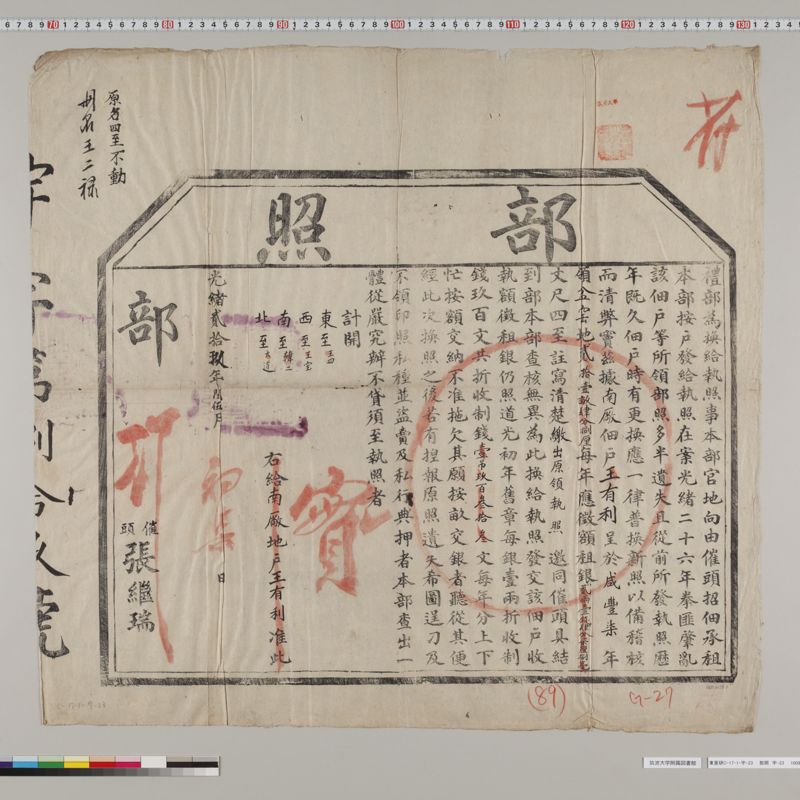 部照
禮部為換給執照事本部官地向由催頭招佃承租
本部按戶發給執照在案光緒二十六年拳匪肇亂
該佃戶等所領部照多半遺失且從前所發執照歷
年既久佃戶時有更換應一律普換新照以備稽核
而清弊竇茲據南厰佃戶王有利呈於咸豐柒年
領 地貳拾壹畝肆分捌厘每年應徵額租銀
丈尺四至註寫清楚繳出原領執照邀同催頭具結
到部本部查核無異為此換給執照發交該佃戶收
執額徵租銀仍照道光初年舊章每銀壹兩折收制
錢玖百文共折收制錢壹吊玖百叁拾叁文每年分上下
忙按額交納不准拖欠其願按畝交銀者聽從其便
經此次換照之後若有捏報原照遺失希圖逞刁及
不領印照私種並盜賣及私行典押者本部查出一
體從嚴究辦不貸須至執照者
計開
東至
西至王
南至
北至官道
右給南厰地戶王有利准此
光緒貳拾玖年閏伍月初 日
部
催頭 張繼瑞
實
原名四至不動
册名王二祿
字第 號
(89)
G-27
C-17-1-字-23
筑波大学附属図書館
70
80
90
100
110
120
130